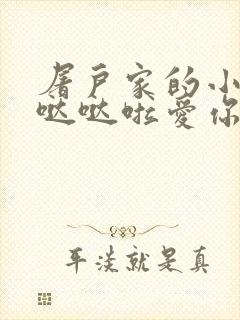 屠户家的小
哒哒啦爱你
平淡就是真